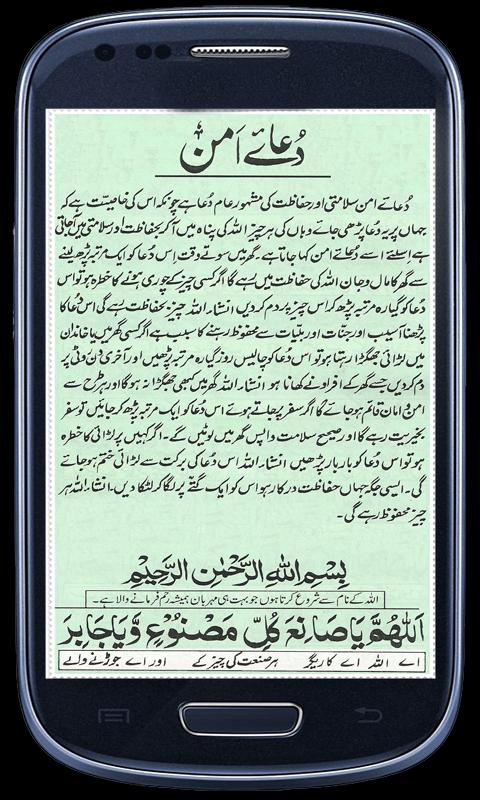 دُعائے اَمن
دُعائے امن سلامتی اور حفاظت کی مشہور عام دُعا ہے چونکہ اس کی خاصیت ہے کہ
جہاں پر یہ دُعا پڑھی جائے وہاں کی ہر چیز اللہ کی پناہ میں آ کر بحفاظت اور سلامتی میں آجاتی
ہے اسلئے اسے دُعائے امن کہا جاتا ہے۔ گھر میں سوتے وقت اِس دُعا کو ایک مرتبہ پڑھ لینے
سے گھر کا مال و جان اللہ کی حفاظت میں رہے گا اگر کسی چیز کے چوری ہونے کا خطرہ ہو تو اس
دُعا کو گیارہ مرتبہ پڑھ کر اس چیز پر دم کر دیں انشاء اللہ چیز بحفاظت رہے گی اس دُعا کا
پڑھنا آسیب اور جنّات اور بلیّات سے محفوظ رہنے کا سبب ہے اگر کسی گھر میں یا خاندان
میں لڑائی جھگڑا رہتا ہو تو اس دُعا کو چالیس روز گیارہ مرتبہ پڑھیں اور آخری دن روٹی پر
دم کر دیں جسے گھر کے افراد نے کھانا ہو انشاء اللہ گھر میں کبھی جھگڑا نہ ہوگا اور ہر طرح سے
امن و امان قائم ہو جائے گا اگر سفر پر جاتے ہوئے اس دُعا کو ایک مرتبہ پڑھ کر جائیں تو سفر
بخیریت رہے گا اور صحیح سلامت واپس گھر میں لوٹیں گے۔ اگر کہیں پر لڑائی کا خطرہ
ہو تو اس دُعا کو بار بار پڑھیں انشاء اللہ اس دُعا کی برکت سے لڑائی ختم ہو جائے
گی۔ ایسی جگہ جہاں حفاظت درکار ہو اس کو ایک گتے پر لگا کر لٹکا دیں۔ انشاء اللہ ہر
چیز محفوظ رہے گی۔
بِسْمِ اللهِ الرَّحْمٰنِ الرَّحِيْمِ
اللہ کے نام سے شروع کرتا ہوں جو بہت ہی مہربان ہمیشہ رحم فرمانے والا ہے۔
اَللّٰهُمَّ يَا صَانِعَ كُلِّ مَصْنُوْعٍ وَّيَا جَابِرَ
اے اللہ اے کاریگر ہر صنعت کی چیز کے اور اے جوڑنے والے